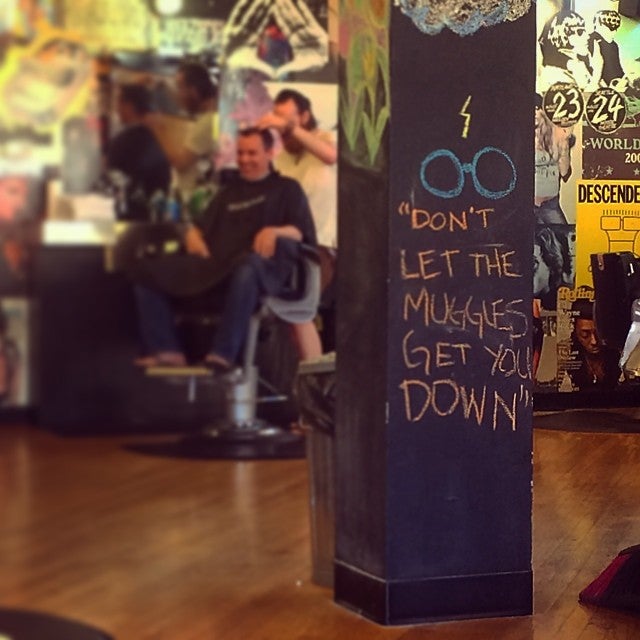 "DON'T
LET THE
MUGGLES
GET YOU
DOWN"
23 24
WORLD
DESCENDE
Rolling